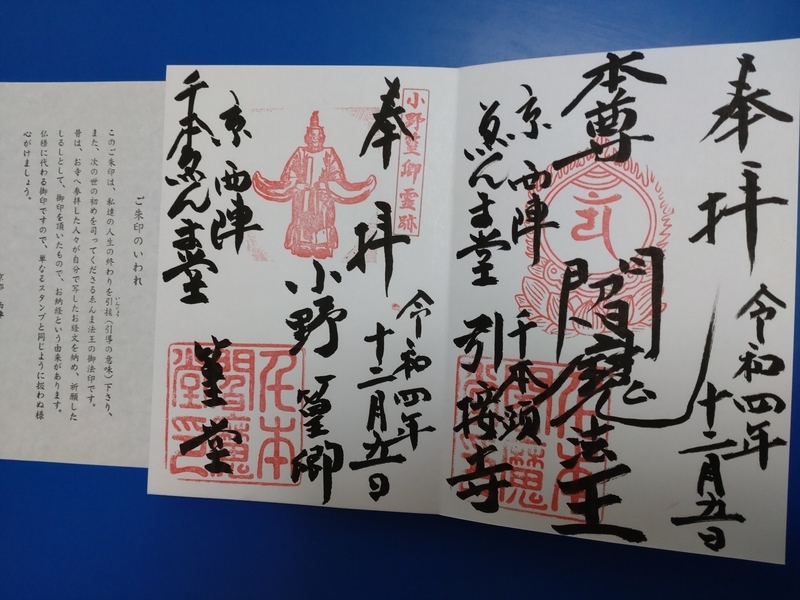 奉拝
令和四年
十二月五日
本尊
閻魔法王
京 西陣
千本頭
ゑんま堂
引接寺
小野篁卿霊跡
奉拝
令和四年
十二月五日
小野篁卿
京 西陣
千本ゑんま堂
篁堂
千本
閻魔
堂印
ご朱印のいわれ
このご朱印は、私達の人生の終わりを引接(引導の意味)下さり、
いんじょう
また、次の世の初めを司ってくださるゑんま法王の御法印です。
昔は、お寺へ参拝した人々が自分で写したお経文を納め、祈願した
しるしとして、御印を頂いたもので、お納経という由来があります。
仏様に代わる御印ですので、単なるスタンプと同じように扱わぬ様
心がけましょう。